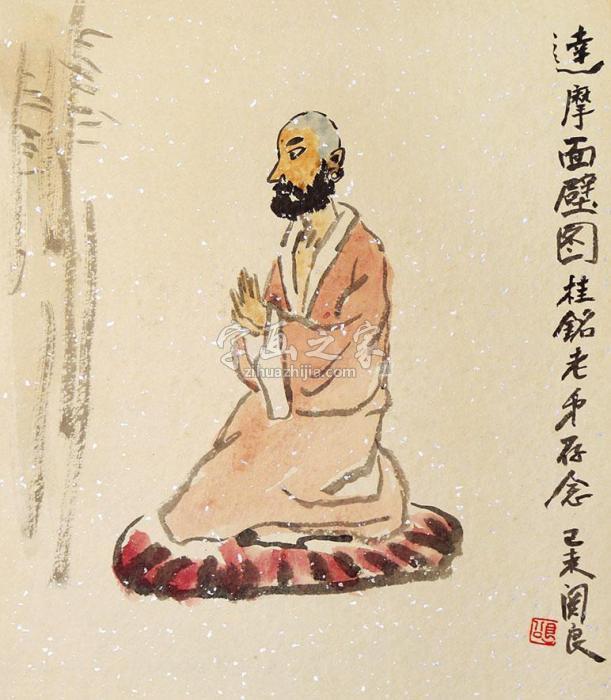 達摩面壁图 桂銘老弟存念 己未 関良
字画之家
zihuazhijia.com